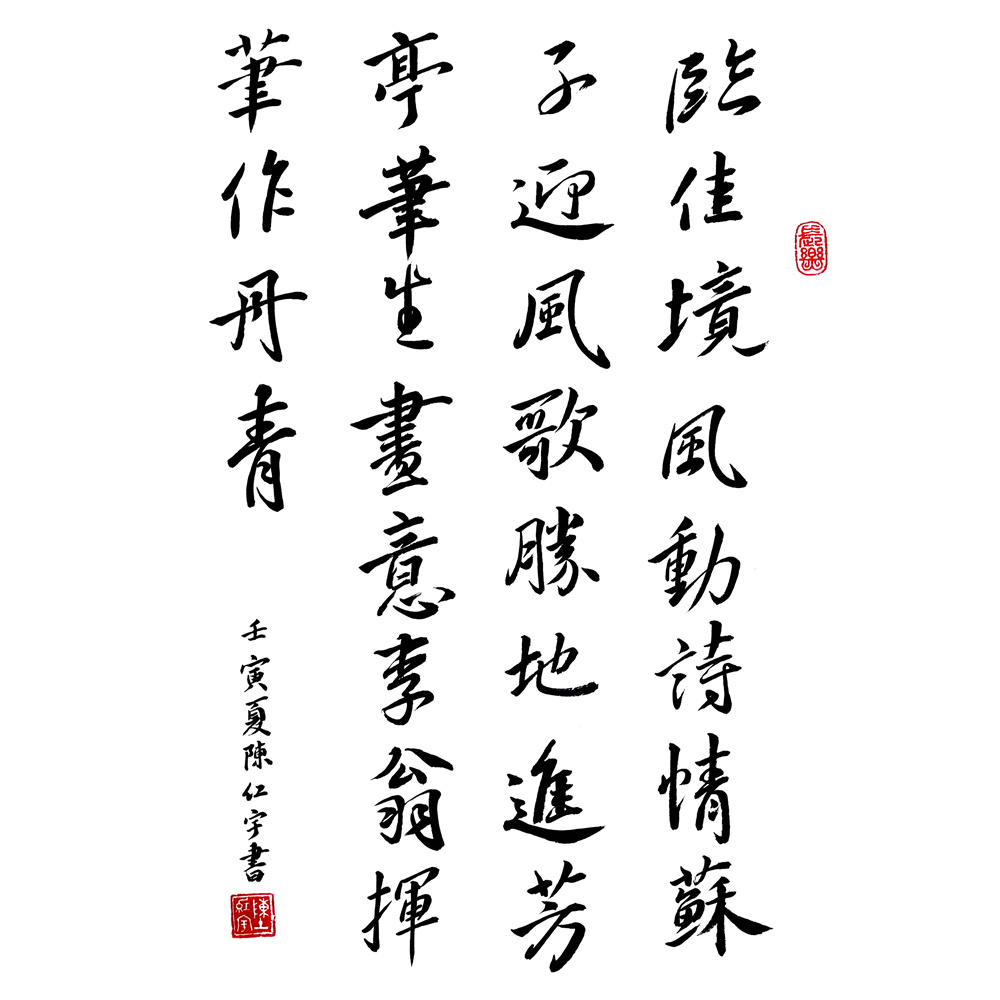 臨佳境風動詩情蘇
子迎風歌勝地進芳
亭筆生畫意李翁揮
筆作丹青
壬寅夏陳仁宇書